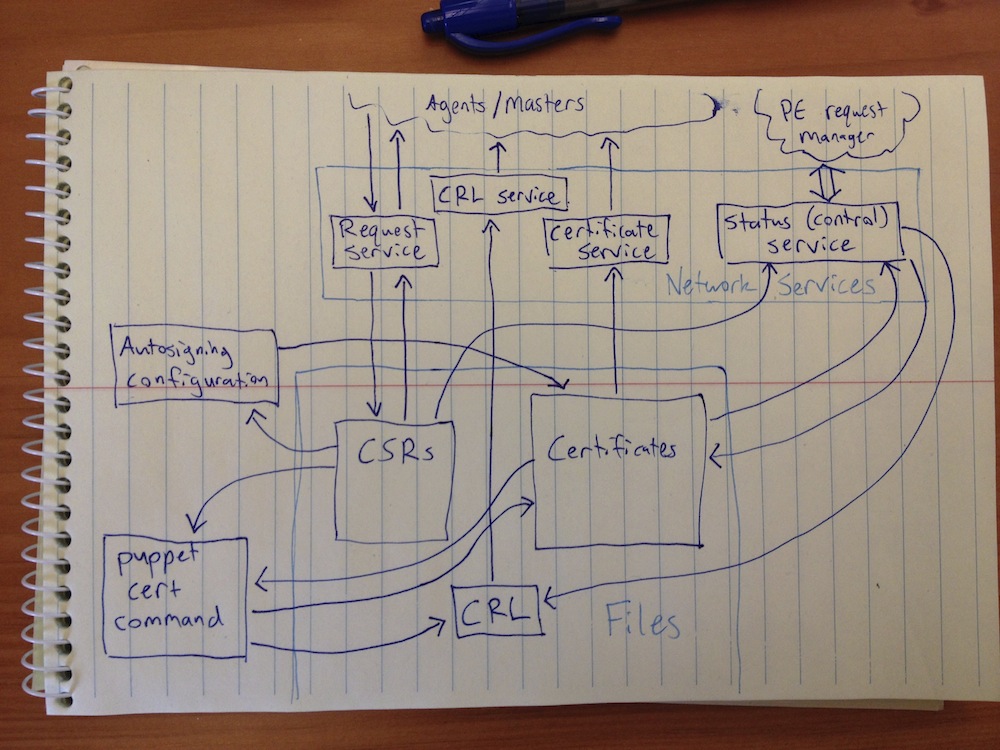 Agents/Masters
PE request
manager
CRL service
Request
service
Certificate
service
Status (control)
service
Network Services
Autosigning
configuration
CSRs
Certificates
puppet
cert
command
CRL
Files